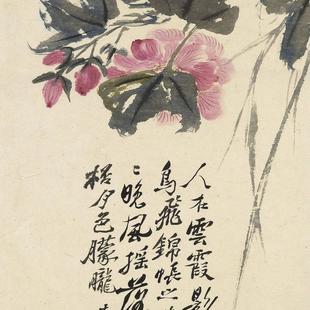 人在雲霞影
鳥飛錦帳
晚風搖落
夕色朦朧